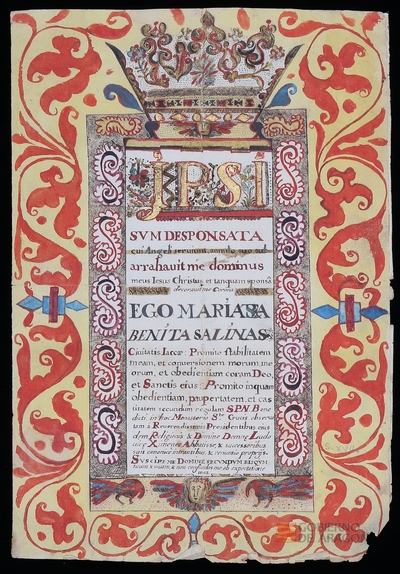 IPSI
SVM DESPONSATA
cui Angeli serviunt, annulo suo sub
arrahauit me dominus
meus Iesus Christus et tanquam sponsā
decorauit me Corona
EGO MARIA
BENITA SALINAS
Ciuitatis Iacce Promito stabilitatem
meam, et conversionem morum me
orum, et obedientiam coram Deo
et Sanctis eius Promito inquam
obedientiam, paupertatem, et cas
titatem secundum regulam S.P.N. Bene
dicti, in hoc Monasterio Ste Crucis
a Reverendissimis Presidentibus eius
dem Religionis & Domine Domne
SUSCIPE me Domine secundum eloqui
GOBIERNO
DE ARAGON